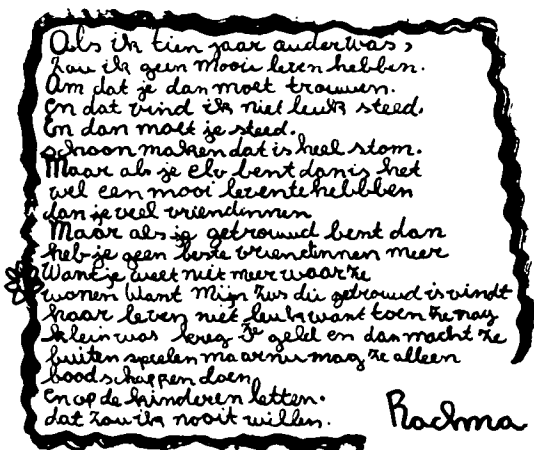 Als ik tien jaar auder was,
Zou ik geen mooi leven hebben.
Om dat je dan moet trouwen.
en dat vind ik niet leuk steed.
En dan moet je steed.
schoon maken dat is heel stom.
Maar als je elv bent dan is het
wel een mooi leven te hebbben
dan je veel vriendinnen
Maar als je getrouwd bent dan
heb je geen beste vriendinnen meer
Want je weet niet meer waar ze
wonen Want Mijn zus die getrouwd is vindt
haar leven niet leuk want toen ze nog
klein was kreg ze geld en dan macht ze
buiten spelen maar nu mag ze alleen
boodschappen doen
en op de kinderen letten.
dat zou ik nooit willen.
Rachma